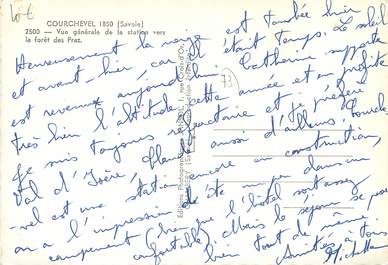 10€
COURCHEVEL 1850 (Savoie)
2500 — Vue générale de la station vers
la forêt des Praz.
73
Heureusement la neige est tombée hier
et avant hier, car il était temps. Le soleil
est revenu aujourd'hui. Catherine supporte
très bien l'altitude cette année et en profite
Je suis toujours réfractaire et je préfère
Val d'Isère, aussi d'ailleurs. Courche
-vel est une station encore en construction,
on a l'impression d'être un peu dans un
campement (bien que l'hôtel soit assez
confortable). Mais le séjour se passe
bien tout de même
Amitiés à tous